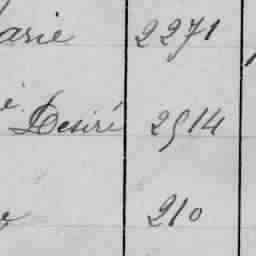 arie 2271
é Desiré 2514
210